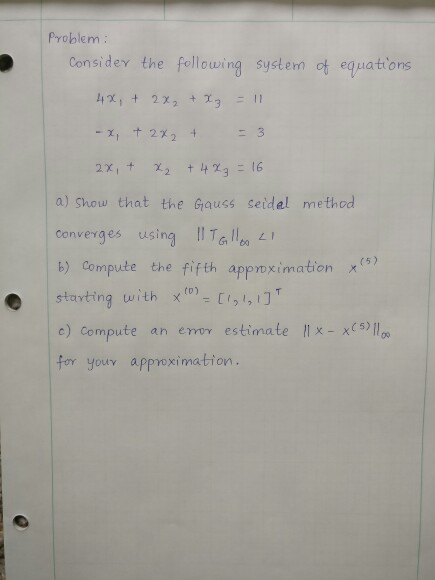 Problem:
Consider the following system of equations
4x₁ + 2x₂ + x₃ = 11
-x₁ + 2x₂ + = 3
2x₁ + x₂ + 4x₃ = 16
a) Show that the Gauss seidel method
converges using ||T_G||∞ <1
b) Compute the fifth approximation x⁽⁵⁾
starting with x⁽⁰⁾ = [1,1,1]ᵀ
c) Compute an error estimate ||x - x⁽⁵⁾||∞
for your approximation.